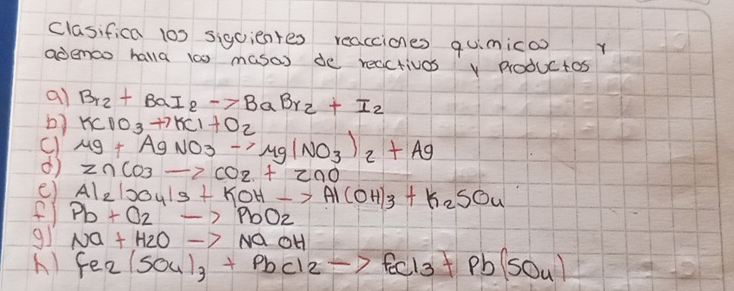 Clasifica los siguientes reacciones quimicas y
ademas halla las masas de reactivos y Productos
a) Br2 + BaI2 -> BaBr2 + I2
b) KClO3 -> KCl + O2
c) Mg + AgNO3 -> Mg(NO3)2 + Ag
d) ZnCO3 -> CO2 + ZnO
e) Al2(SO4)3 + KOH -> Al(OH)3 + K2SO4
f) Pb + O2 -> PbO2
g) Na + H2O -> NaOH
h) Fe2(SO4)3 + PbCl2 -> FeCl3 + Pb(SO4)